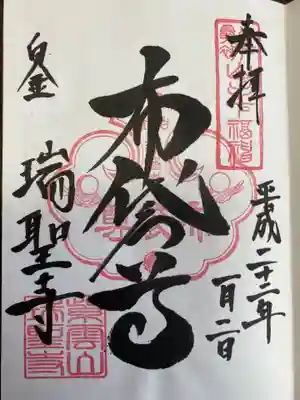 奉拝
平成二十二年
一月二日
布袋尊
白金
瑞聖寺
紫雲山
瑞聖寺